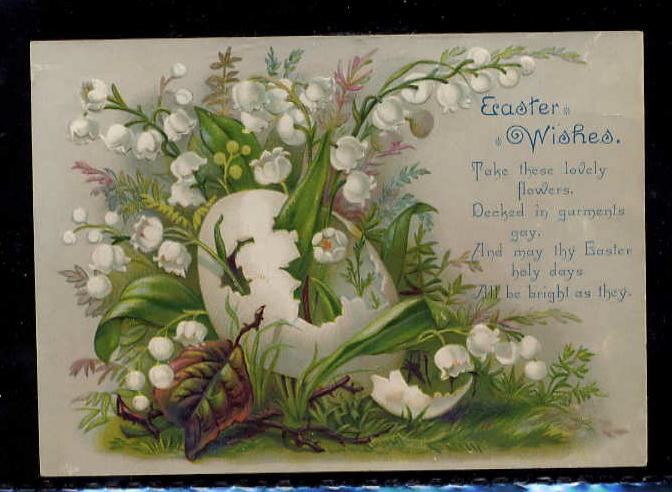 Easter
Wishes.
Take these lovely
flowers,
Decked in garments
gay.
And may thy Easter
holy days
All be bright as they.